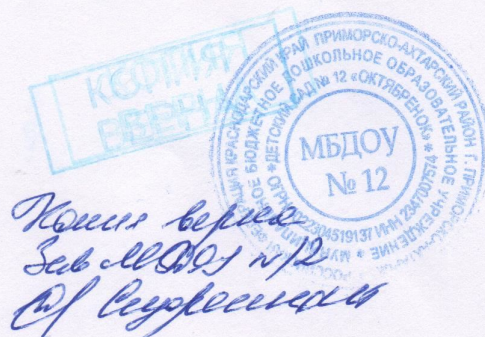 КОПИЯ
ВЕРНА
РОССИЙСКАЯ ФЕДЕРАЦИЯ КРАСНОДАРСКИЙ КРАЙ ПРИМОРСКО-АХТАРСКИЙ РАЙОН Г. ПРИМОРСКО-АХТАРСК
МУНИЦИПАЛЬНОЕ БЮДЖЕТНОЕ ДОШКОЛЬНОЕ ОБРАЗОВАТЕЛЬНОЕ УЧРЕЖДЕНИЕ *
* ДЕТСКИЙ САД № 12 «ОКТЯБРЕНОК» *
ИНН 2347007574
МБДОУ
№ 12
Копия верна
Зав МБДОУ №12